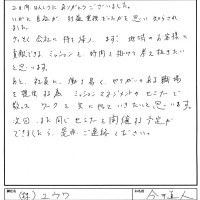 2日間ほんとうにありがとうございました。
いかに自分が 財産管理だったかと思い知らされ
ました。
さっそく会社に持ち帰り、まず、地域のお客様に
貢献できる ミッションを 時間を掛けて 考え抜きたい
と思います。
あと、社員に、働き易く、やりがいのある職場
を提供する為 ミッションマネジメントのセミナーで
教った ワークを 共に やって いきたいと思います。
次回、また同じセミナーを開催する予定が
できましたら、是非、ご連絡ください。
(株)ユウワ
今井直人